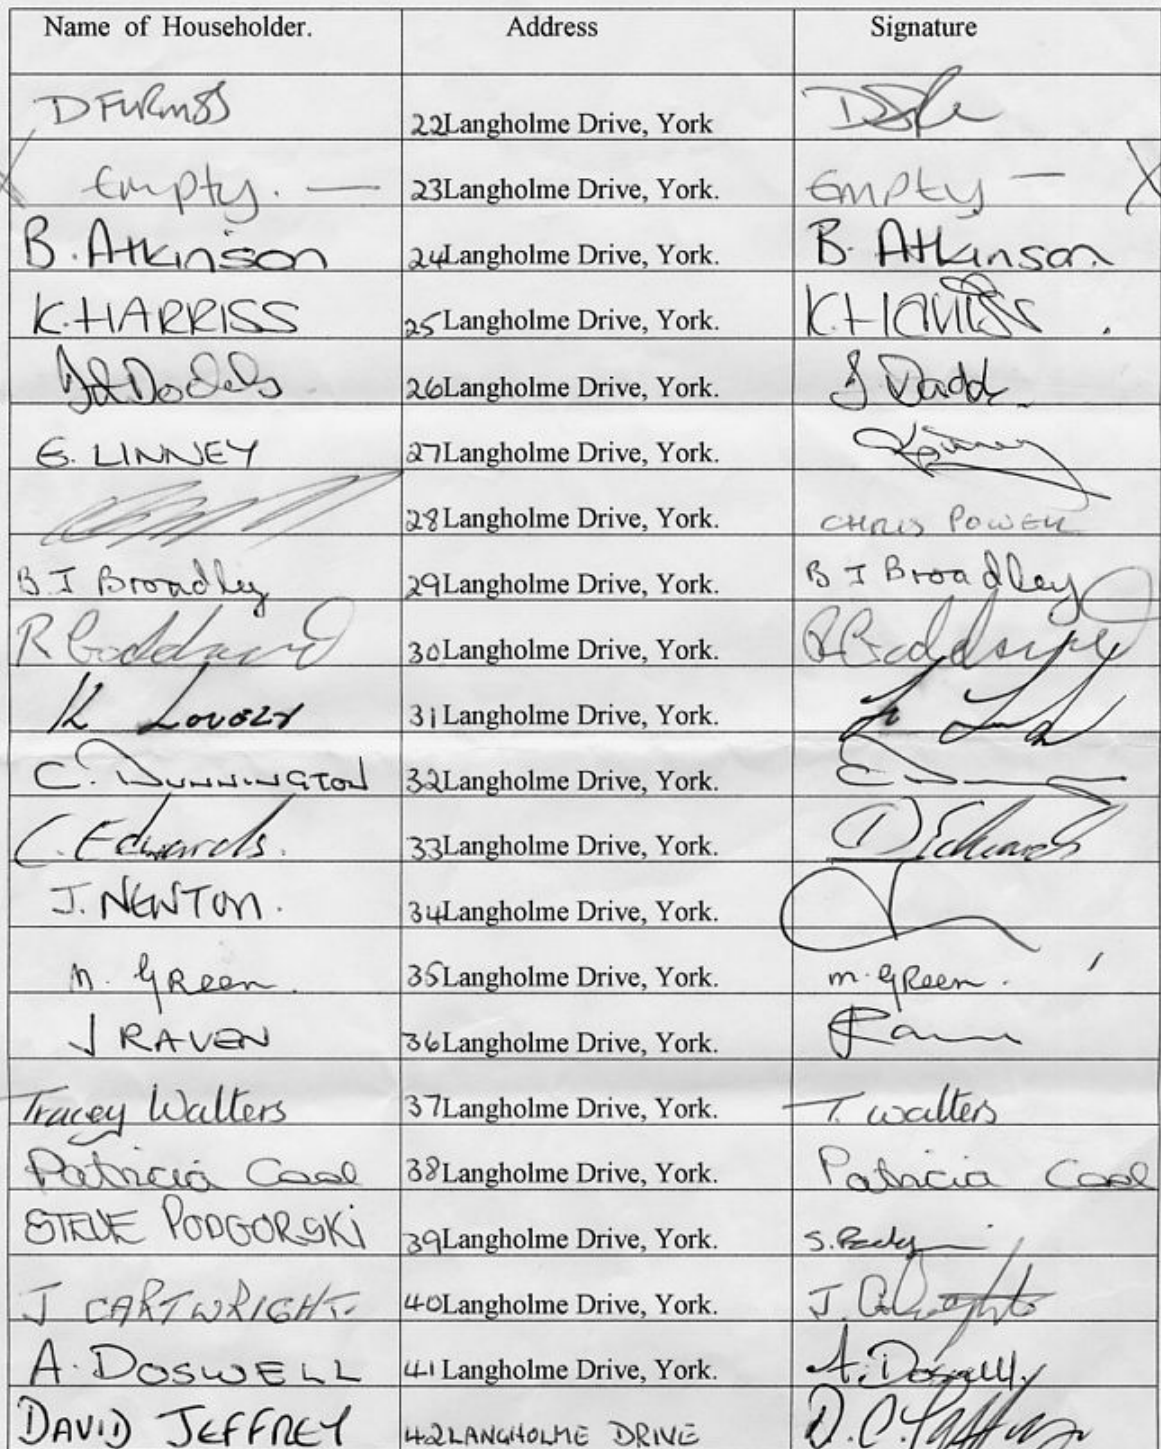 Name of Householder. Address Signature
D FURNISS 22 Langholme Drive, York
Empty. — 23 Langholme Drive, York. Empty — X
B. Atkinson 24 Langholme Drive, York. B. Atkinson
K. HARRISS 25 Langholme Drive, York. K. Harriss
Dodds 26 Langholme Drive, York. J Dodds
G. LINNEY 27 Langholme Drive, York. Linney
28 Langholme Drive, York. CHRIS POWELL
B J Broadley 29 Langholme Drive, York. B J Broadley
R Goddard 30 Langholme Drive, York. R Goddard
K LOVELY 31 Langholme Drive, York.
C. DUNNINGTON 32 Langholme Drive, York.
C. Edwards. 33 Langholme Drive, York. D Edwards
J. NEWTON. 34 Langholme Drive, York.
M. GReen. 35 Langholme Drive, York. m. gReen.
J RAVEN 36 Langholme Drive, York.
Tracey Walters 37 Langholme Drive, York. T. Walters
Patricia Coal 38 Langholme Drive, York. Patricia Coal
STEVE PODGORSKI 39 Langholme Drive, York.
J CARTWRIGHT. 40 Langholme Drive, York. J. Cartwright
A. DOSWELL 41 Langholme Drive, York. A. Doswell.
DAVID JEFFREY 42 LANGHOLME DRIVE